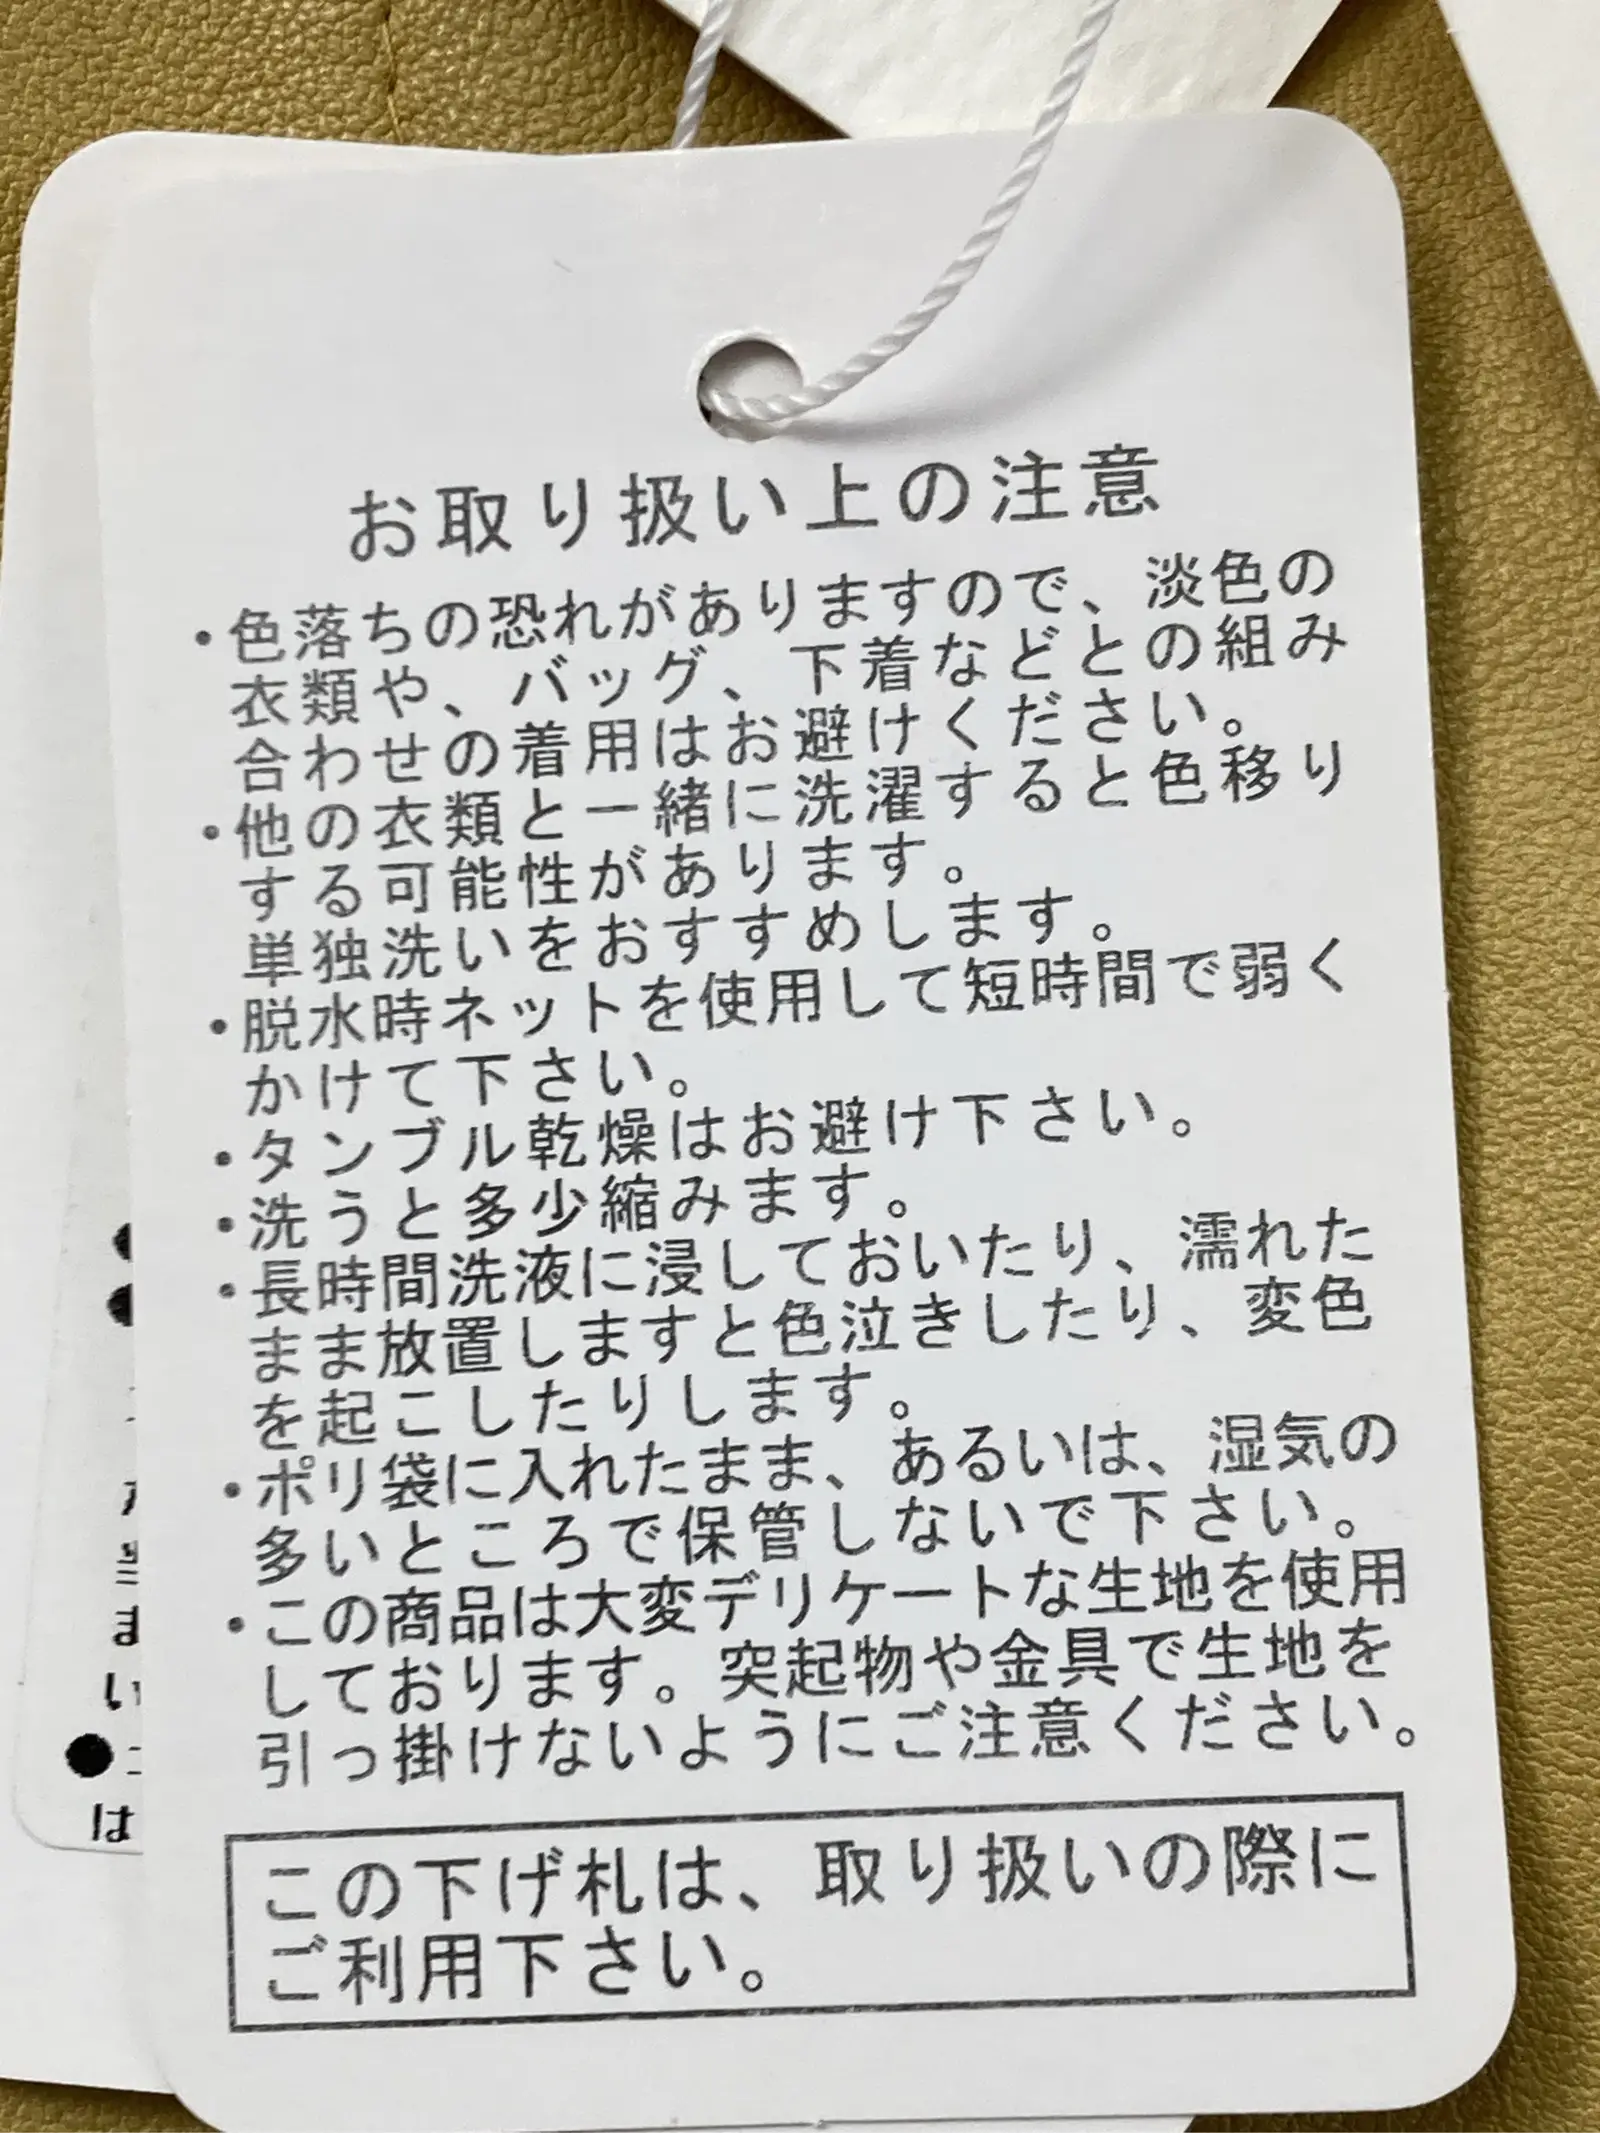 お取り扱い上の注意
・色落ちの恐れがありますので、淡色の
衣類や、バッグ、下着などとの組み
合わせの着用はお避けください。
・他の衣類と一緒に洗濯すると色移り
する可能性があります。
単独洗いをおすすめします。
・脱水時ネットを使用して短時間で弱く
かけて下さい。
・タンブル乾燥はお避け下さい。
・洗うと多少縮みます。
・長時間洗液に浸しておいたり、濡れた
まま放置しますと色泣きしたり、変色
を起こしたりします。
・ポリ袋に入れたまま、あるいは、湿気の
多いところで保管しないで下さい。
・この商品は大変デリケートな生地を使用
しております。突起物や金具で生地を
引っ掛けないようにご注意ください。
この下げ札は、取り扱いの際に
ご利用下さい。
ま
い
は